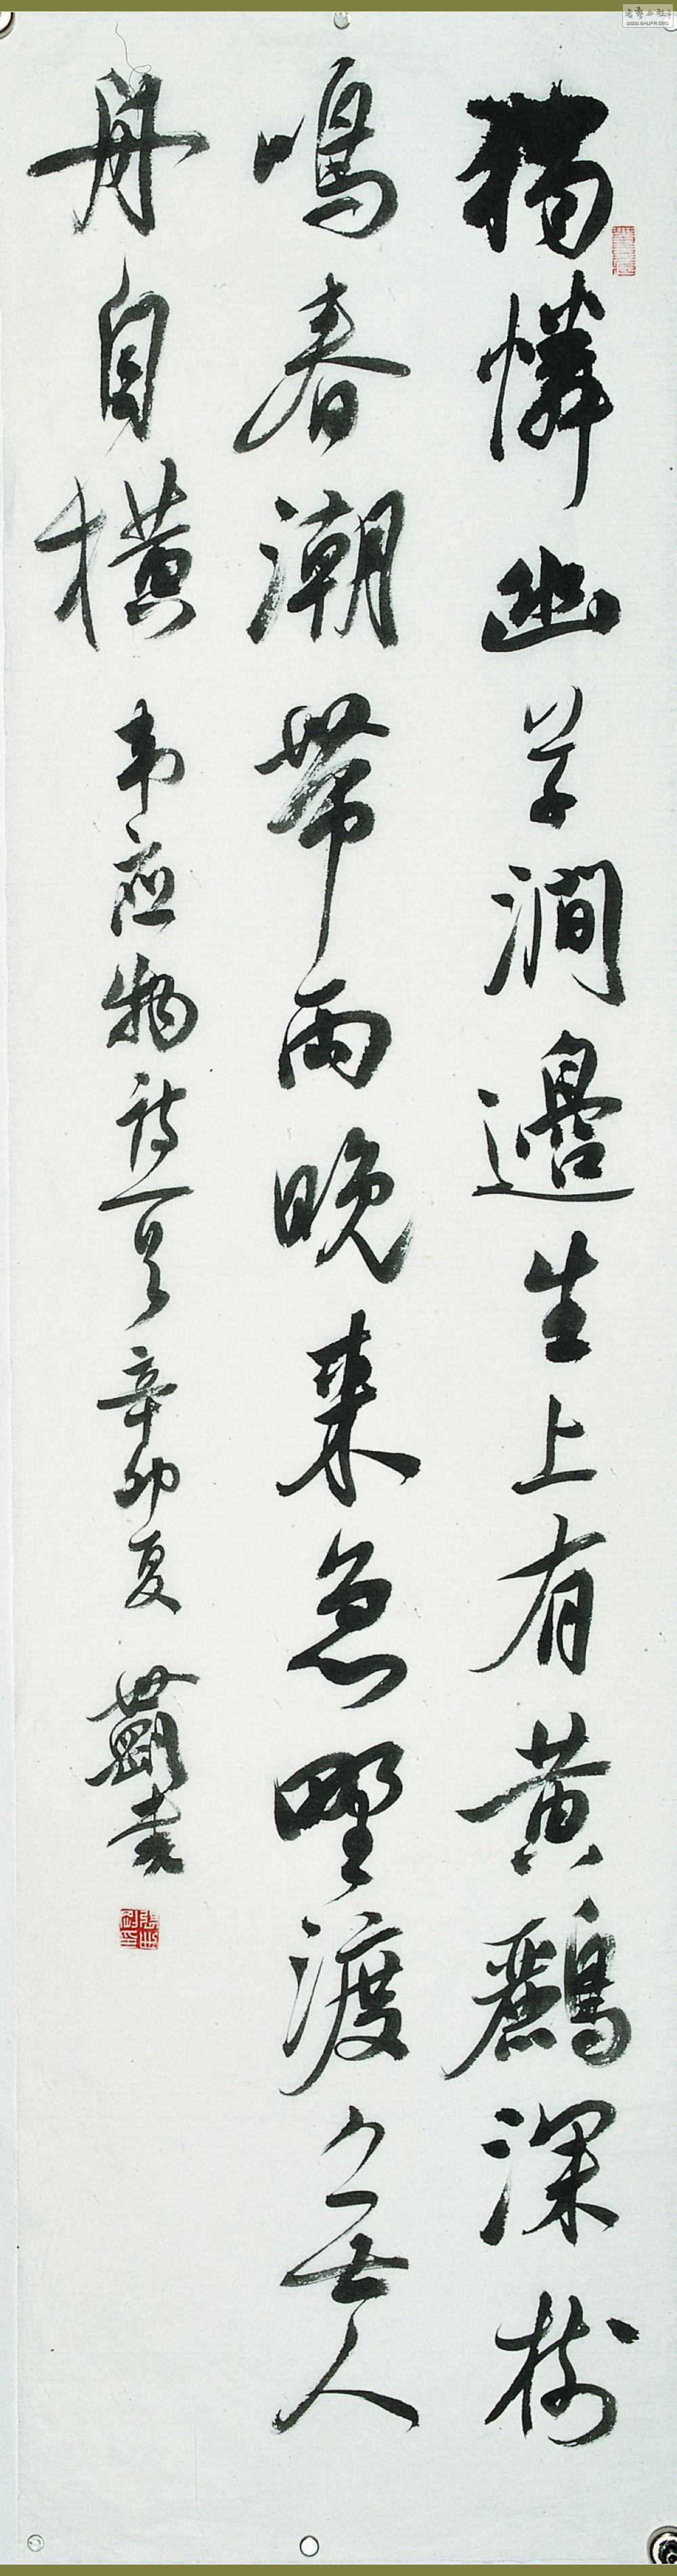 獨憐幽草澗邊生上有黃鸝深樹
鳴春潮帶雨晚來急野渡無人
舟自橫 韋應物詩一首 辛卯夏 世剛書
WWW.SHUFA.ORG